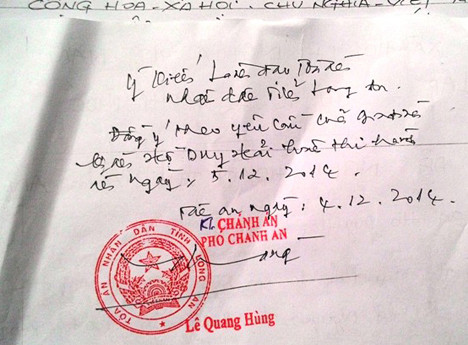 CỘNG HÒA - XÃ HỘI - CHỦ NGHĨA - VIỆT
Ý kiến Lãnh đạo Tòa án
Nhân dân tỉnh Long An.
Đồng ý theo yêu cầu của
Hồ Duy Hải thi hành
án ngày: 5.12.2014.
án ngày: 4.12.2014.
KT. CHÁNH ÁN
PHÓ CHÁNH ÁN
TÒA ÁN NHÂN DÂN TỈNH LONG AN
Lê Quang Hùng